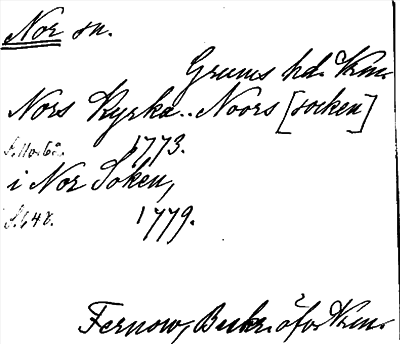 Nor sn.
Grums hd. Vrm.
Nors Kyrka.. Noors [socken]
1773.
i Nor Soken,
S. 648. 1779.
Fernow, Beskr. öfv. Vrm.